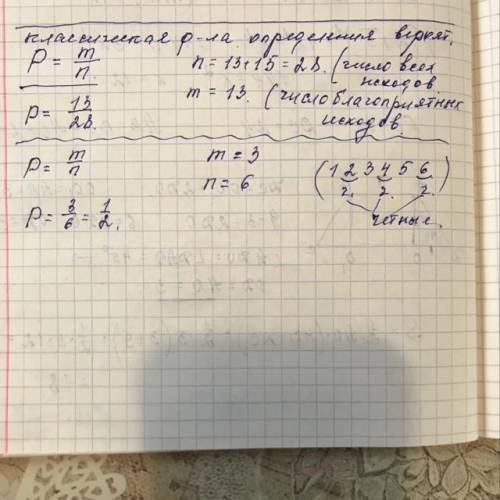 классическая ф-ла. определения вероят.
P = m/n. n = 13+15 = 28. (число всех исходов
P = 13/28. m = 13. (число благоприятных исходов.
P = m/n m = 3 (1 2 3 4 5 6)
n = 6 2. 2. 2.
P = 3/6 = 1/2. четные.